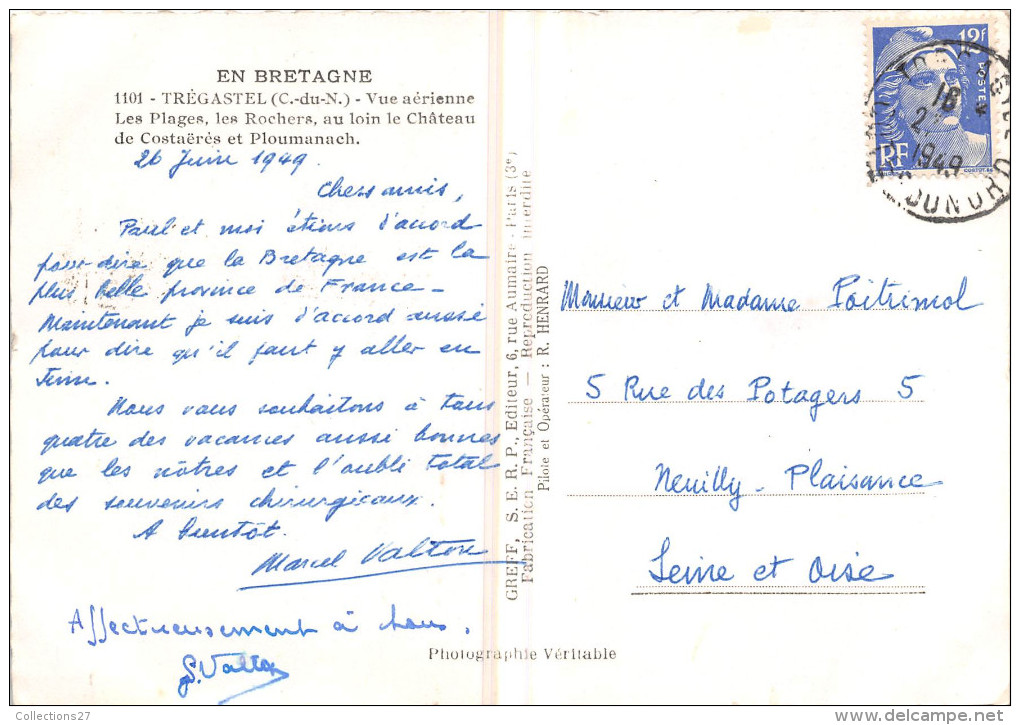 EN BRETAGNE
1101 - TRÉGASTEL (C.-du-N.) - Vue aérienne
Les Plages, les Rochers, au loin le Château
de Costaërés et Ploumanach.
26 Juin 1949.
Chers amis,
Paul et moi étions d'accord
pour dire que la Bretagne est la
plus belle province de France -
Maintenant je suis d'accord aussi
pour dire qu'il faut y aller en
Juin.
Nous vous souhaitons à tous
quatre des vacances aussi bonnes
que les nôtres et l'oubli total
des souvenirs chirurgicaux.
A bientôt.
Marcel Valton
Affectueusement à tous.
G. Valton
GREFF, S. E. R. P., Editeur, 6, rue Aumaire - Paris (3e)
Fabrication Française — Reproduction Interdite
Pilote et Opérateur : R. HENRARD
Photographie Véritable
12f
POSTES
RF
18
1949
Monsieur et Madame Poitrimol
5 Rue des Potagers 5
Neuilly - Plaisance
Seine et Oise
Collections27